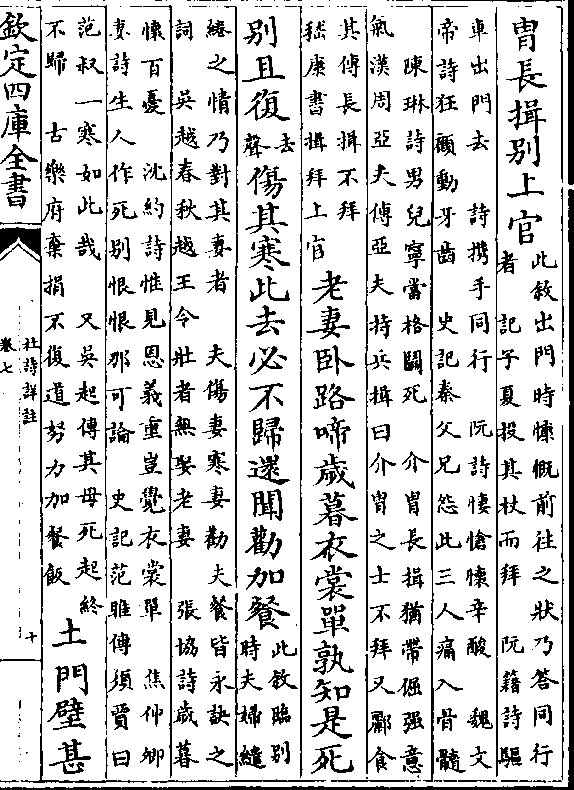 冑長揖别上官 此敘出門時慷慨前往之狀乃答同行
者 記子夏投其杖而拜 阮籍詩驅
車出門去 詩攜手同行 阮詩悽愴懷辛酸 魏文
帝詩狂顧動牙齒 史記秦父兄怨此三人痛入骨髓
陳琳詩男兒寧當格鬬死 介胄長揖猶帶倔强意
氣漢周亞夫傳亞夫持兵揖曰介胄之士不拜又酈食
其傳長揖不拜
嵇康書揖拜上官 老妻卧路啼歲暮衣裳單孰知是死
别且復 去
聲 傷其寒此去必不歸還聞勸加餐 此敘臨别
時夫婦繾
綣之情乃對其妻者 夫傷妻寒妻勸夫餐皆永訣之
詞 吳越春秋越王令壯者無娶老妻 張協詩歲暮
懷百憂 沈約詩惟見恩義重豈覺衣裳單 焦仲卿
妻詩生人作死别恨恨那可論 史記范雎傳須賈曰
范叔一寒如此哉 又吳起傳其母死起終
不歸 古樂府棄捐不復道努力加餐飯 土門壁甚
欽定四庫全書
杜詩詳註
卷七
十